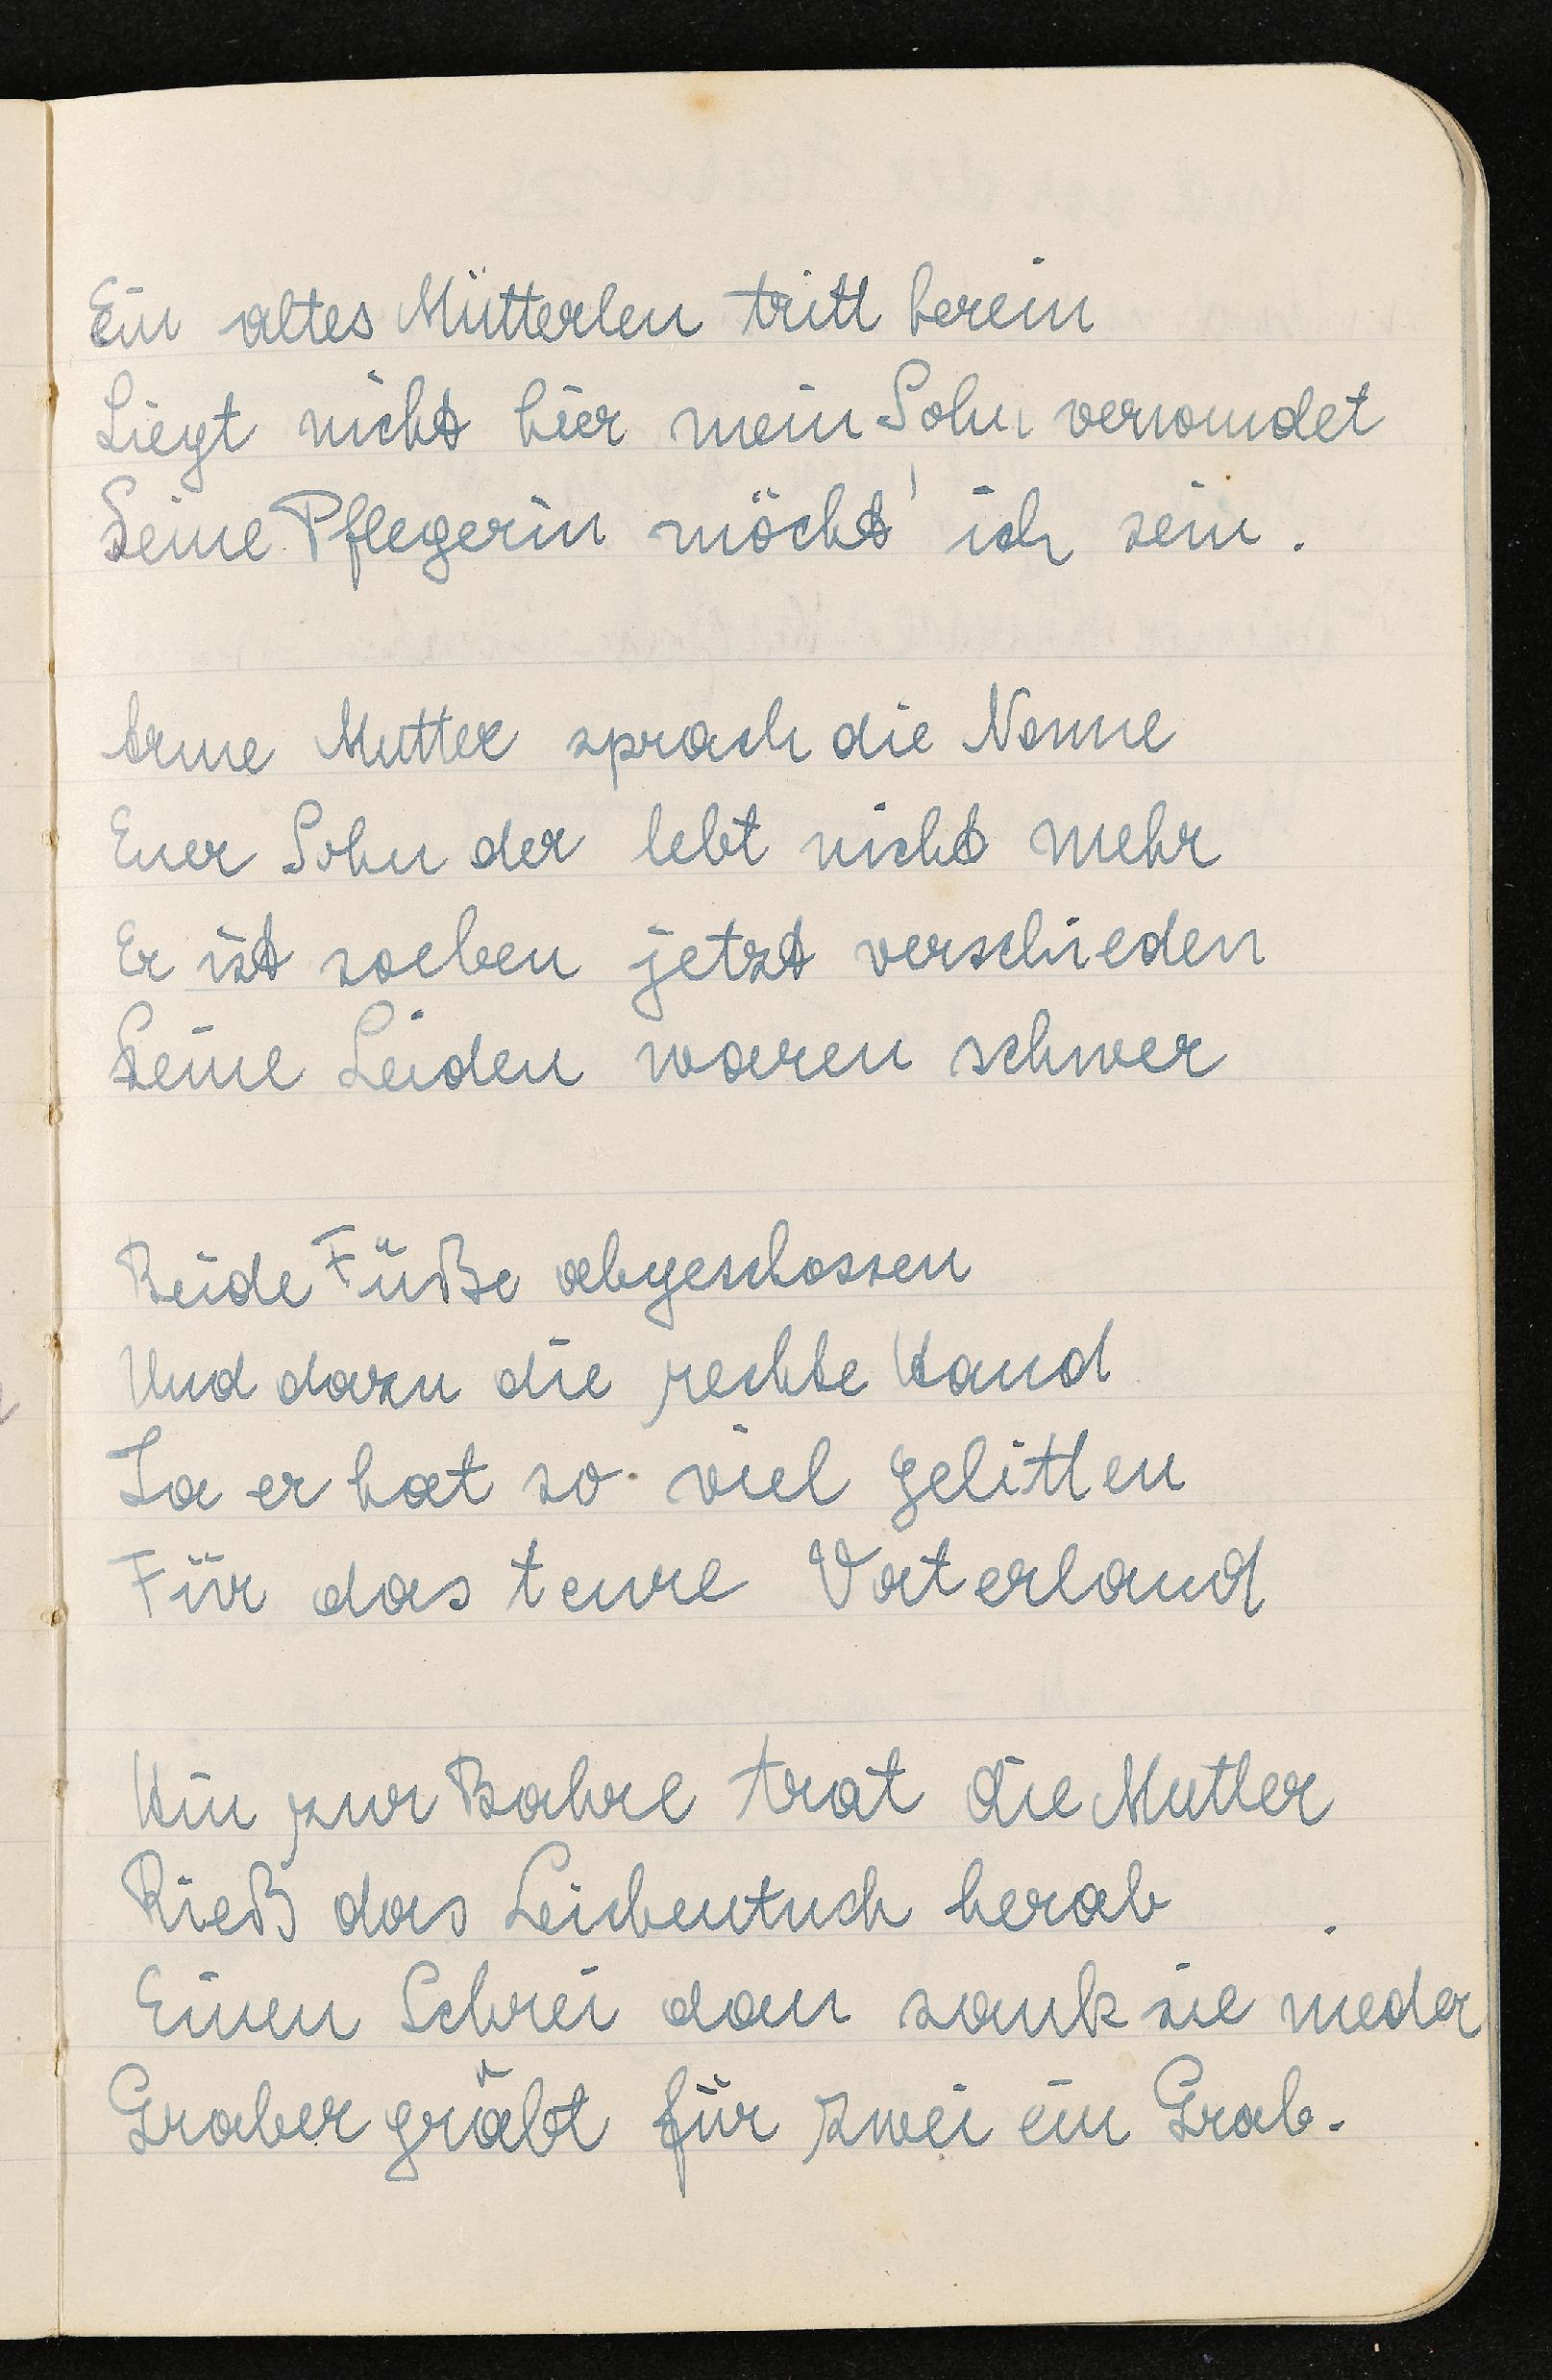 Ein altes Mütterlen tritt herein
Liegt nicht hier mein Sohn verwundet
Seine Pflegerin möcht' ich sein.
Arme Mutter sprach die Nonne
Euer Sohn der lebt nicht mehr
Er ist soeben jetzt verschieden
Seine Leiden waren schwer
Beide Füße abgeschossen
Und dazu die rechte Hand
Ja er hat so viel gelitten
Für das teure Vaterland
Hin zur Bahre trat die Mutter
Rieß das Leichentuch herab
Einen Schrei dan sank sie nieder
Graber gräbt für zwei ein Grab.